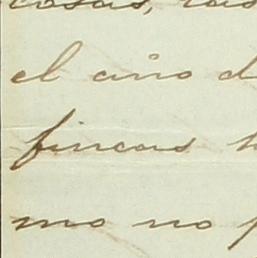 cosas, las
el año d
fincas
mo no p